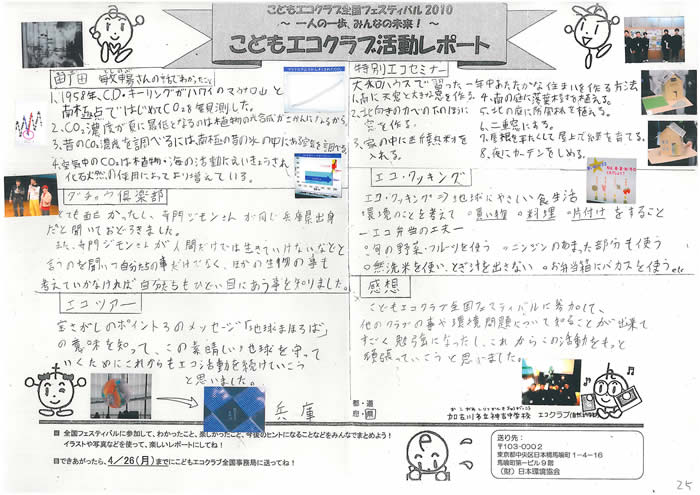 こどもエコクラブ全国フェスティバル2010
～一人の一歩、みんなの未来！～
こどもエコクラブ活動レポート
1.1958年、C.D.キーリングがハワイのマウナロア山と
南極点ではじめてCO2を観測した。
2.CO2濃度が夏に最低となるのは植物の光合成がさかんになるから。
3.昔のCO2濃度を調べるには、南極の昔の氷の中にある空気を調べる。
4.空気中のCO2は植物・海の活動にえいきょうされ
化石燃料の使用によってより増えている。
ダチョウ倶楽部
とても面白かったし、寺門ジモンさんが同じ兵庫県出身
だと聞いておどろきました。
また、寺門ジモンさんが人間だけでは生きていけないなどと
言うのを聞いて自分たちの事だけでなく、ほかの生物の事も
考えていかなければ自分たちもひどい目にあう事を知りました。
エコツアー
宝さがしのポイント3のメッセージ「地球まほろば」
の意味を知って、この素晴しい地球を守って
いくためにこれからもエコ活動を続けていこう
と思いました。
特別エコセミナー
大和ハウスで習った一年中あたたかな住まいを作る方法
1.南に大窓と大きな窓を作る。
2.北向きのかべの下のほうに
窓を作る。
3.家の中に断熱材を
入れる。
4.南の庭に落葉樹を植える。
5.北の庭に常緑樹を植える。
6.二重窓にする。
7.屋根を平たくして屋上で緑を育てる。
8.夜にカーテンをしめる。
エコ・クッキング
エコ・クッキング⇒地球にやさしい食生活
環境のことを考えて ○買い物 ○料理 ○片付けをすること
ーエコ弁当の工夫ー
○旬の野菜・フルーツを使う ○ニンジンのあまった部分も使う
○無洗米を使い、とぎ汁を出さない ○お弁当箱にバカスを使うetc
感想
こどもエコクラブ全国フェスティバルに参加して、
他のクラブの事や環境問題について知ることが出来て
すごく勉強になったし、これからこの活動をもっと
頑張っていこうと思いました。
兵庫
都・道
府・県
加古川市立神吉中学校
エコクラブ
全国フェスティバルに参加して、わかったこと、楽しかったこと、今後のヒントになることなどをみんなでまとめよう！
イラストや写真などを使って、楽しいレポートにしてね！
できあがったら、4/26(月)までにこどもエコクラブ全国事務局に送ってね！
送り先：
〒103-0002
東京都中央区日本橋馬喰町1-4-16
馬喰町第一ビル9階
（財）日本環境協会
25